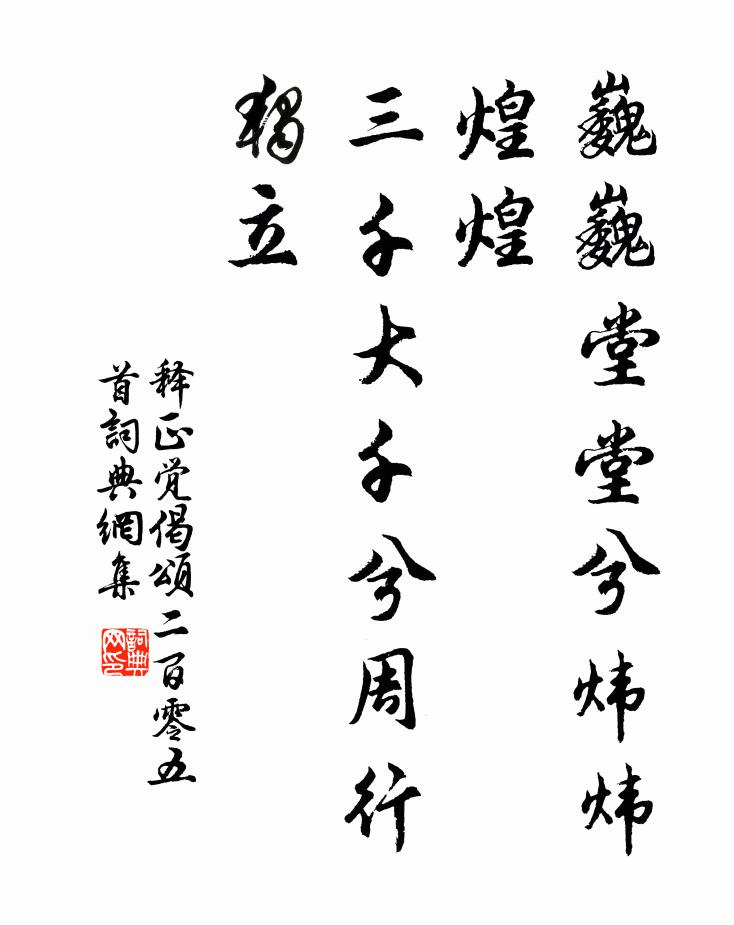 巍巍堂堂兮炜炜
煌煌
三千大千兮周行
獨立
释正觉偈頌二百零五
首詞典網集
詞典
网印